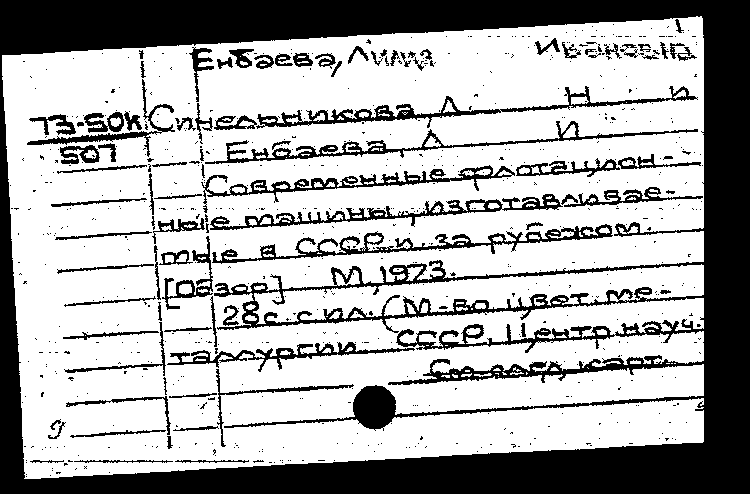 Енбаева, Лилия Ивановна
73-50к Синельникова, Л. Н и
507 Енбаева, Л И.
Современные флотацион-
ные машины, изготавливае-
мые в СССР и за рубежом.
[Обзор] М., 1973.
28с. с ил. (М-во цвет. ме-
таллургии СССР. Центр. науч.
См. след. карт.
g